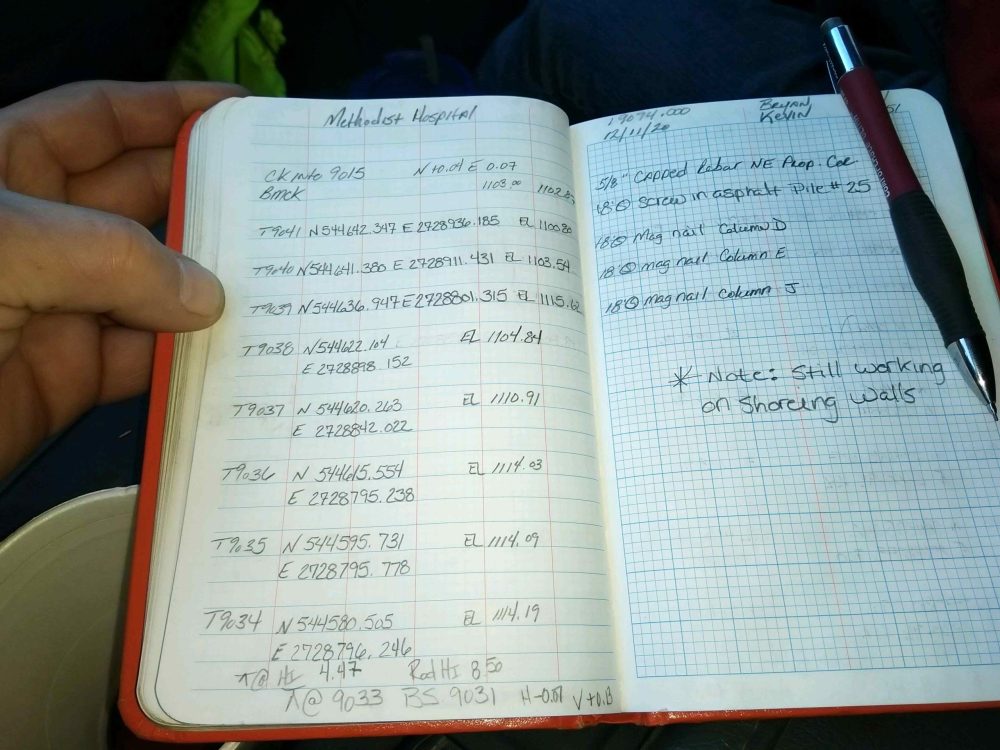 Methodist Hospital
CK into 9015 N +0.01 E 0.07
BMCK 1103.00
T9041 N 544642.347 E 2728936.185 EL 1100.80
T9040 N 544641.380 E 2728911.431 EL 1103.54
T9039 N 544636.947 E 2728801.315 EL 1115.62
T9038 N 544622.104 EL 1104.84
E 2728898.152
T9037 N 544620.263 EL 1110.91
E 2728842.022
T9036 N 544615.554 EL 1114.03
E 2728795.238
T9035 N 544595.731 EL 1114.09
E 2728795.778
T9034 N 544580.505 EL 1114.19
E 2728796.246
⊼@ HI 4.47 Rod HI 8.50
⊼@ 9033 BS 9031 H -0.01
19074.000 BRYAN,
12/11/20 KEVIN
5/8" Capped Rebar NE Prop. Cor
screw in asphalt Pile # 25
Mag nail Column D
mag nail Column E
mag nail Column J
* Note: Still working
on Shoreing walls